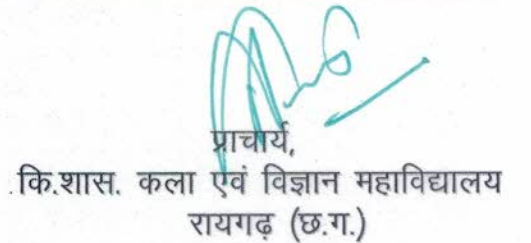 प्राचार्य,
कि.शास. कला एवं विज्ञान महाविद्यालय
रायगढ़ (छ.ग.)